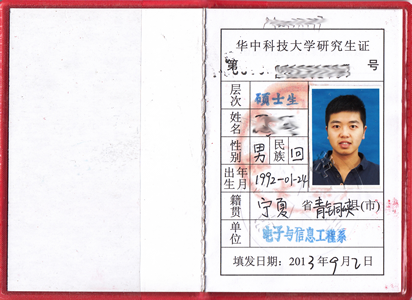 华中科技大学研究生证
第 号
层次 硕士生
姓名
性别 男 民族 回
出生年月 1992-01-24
籍贯 宁夏 省 青铜峡 县(市)
单位 电子与信息工程系
填发日期: 2013年9月2日